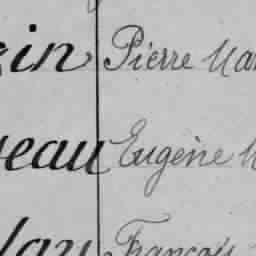 in Pierre Ma
eau Eugène
lay François